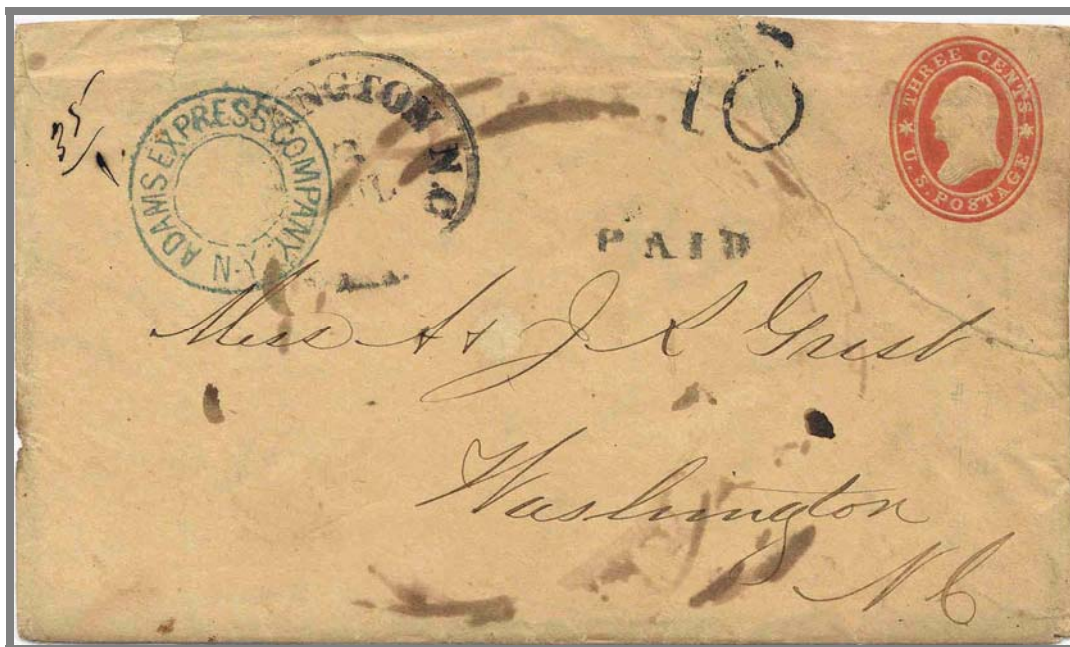 35
ADAMS EXPRESS COMPANY. N-Y.
NGTON N.C
10
THREE CENTS
U.S. POSTAGE
PAID
J R Grist
Washington
N C